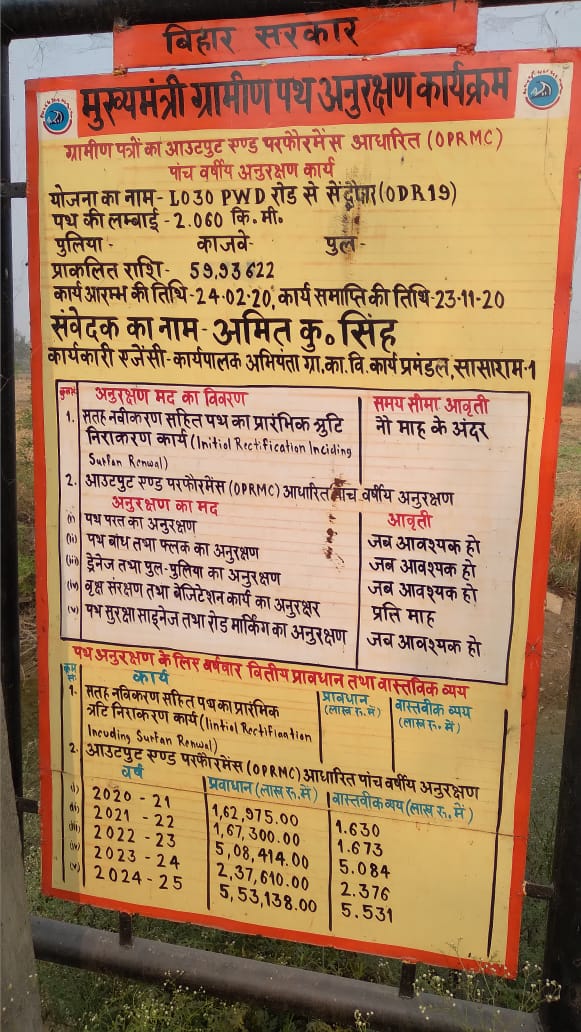 बिहार सरकार
मुख्यमंत्री ग्रामीण पथ अनुरक्षण कार्यक्रम
ग्रामीण पत्रों का आउटपुट एण्ड परफौरमेंस आधारित (OPRMC)
पांच वर्षीय अनुरक्षण कार्य
योजना का नाम - L030 PWD रोड से सेंदुपार (ODR19)
पथ की लम्बाई - 2.060 कि. मी.
पुलिया - काजवे - पुल -
प्राकलित राशि - 59,93622
कार्य आरम्भ की तिथि - 24-02-20, कार्य समाप्ति की तिथि - 23-11-20
संवेदक का नाम - अमित कु॰ सिंह
कार्यकारी एजेंसी - कार्यपालक अभियंता ग्रा.का.वि. कार्य प्रमंडल, सासाराम-1
अनुरक्षण मद का विवरण समय सीमा आवृती
1. सतह नवीकरण सहित पथ का प्रारंभिक त्रुटि नौ माह के अंदर
निराकरण कार्य (Initiol Rectification Inciding
Surfan Renwal)
2. आउटपुट एण्ड परफौरमेंस (OPRMC) आधारित पांच वर्षीय अनुरक्षण
अनुरक्षण का मद आवृती
(i) पथ परत का अनुरक्षण जब आवश्यक हो
(ii) पथ बांध तथा फ्लैंक का अनुरक्षण जब आवश्यक हो
(iii) ड्रेनेज तथा पुल-पुलिया का अनुरक्षण जब आवश्यक हो
(iv) वृक्ष संरक्षण तथा वेजिटेशन कार्य का अनुरक्षर प्रति माह
(v) पथ सुरक्षा साइनेज तथा रोड मार्किंग का अनुरक्षण जब आवश्यक हो
पथ अनुरक्षण के लिए बर्षवार वितीय प्रावधान तथा वास्तविक व्यय
क्रम सं. कार्य प्रावधान (लाख रु. में) वास्तवीक व्यय (लाख रु. में)
1. सतह नविकरण सहित पथ का प्रारंमिक
त्रटि निराकरण कार्य (Iintiol Rectifiantion
Incuding Surfan Renwal)
2. आउटपुट एण्ड परफौरमेंस (OPRMC) आधारित पांच वर्षीय अनुरक्षण
वर्ष प्रावधान (लाख रु. में) वास्तवीक व्यय (लाख रु. में)
(i) 2020 - 21 1,62,975.00 1.630
(ii) 2021 - 22 1,67,300.00 1.673
(iii) 2022 - 23 5,08,414.00 5.084
(iv) 2023 - 24 2,37,610.00 2.376
(v) 2024 - 25 5,53,138.00 5.531